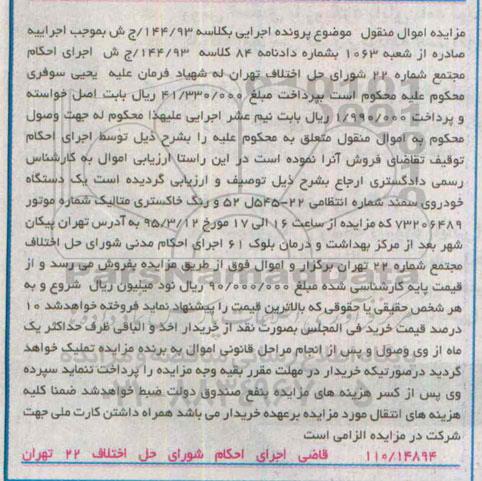 مزایده اموال منقول  موضوع پرونده اجرایی بکلاسه ۱۴۴/۹۳/ج ش بموجب اجراییه
صادره از شعبه ۱۰۶۳ بشماره دادنامه ۸۴ کلاسه ۱۴۴/۹۳/ج ش  اجرای احکام
مجتمع شماره ۲۲ شورای حل اختلاف تهران له شهیاد فرمان علیه  یحیی سوفری
محکوم علیه محکوم است بپرداخت مبلغ ۴۱/۳۳۰/۰۰۰ ریال بابت اصل خواسته
و پرداخت ۱/۹۹۰/۰۰۰ ریال بابت نیم عشر اجرایی علیهذا محکوم له جهت وصول
محکوم به اموال منقول متعلق به محکوم علیه را بشرح ذیل توسط اجرای احکام
توقیف تقاضای فروش آنرا نموده است در این راستا ارزیابی اموال به کارشناس
رسمی دادگستری ارجاع بشرح ذیل توصیف و ارزیابی گردیده است یک دستگاه
خودروی سمند شماره انتظامی ۲۲-۵۴۵ل ۵۲ و رنگ خاکستری متالیک شماره موتور
۷۳۲۰۶۴۸۹ که مزایده از ساعت ۱۶ الی ۱۷ مورخ ۹۵/۳/۱۲ به آدرس تهران پیکان
شهر بعد از مرکز بهداشت و درمان بلوک ۶۱ اجرای احکام مدنی شورای حل اختلاف
مجتمع شماره ۲۲ تهران برگزار و اموال فوق از طریق مزایده بفروش می رسد و از
قیمت پایه کارشناسی شده مبلغ ۹۰/۰۰۰/۰۰۰ ریال نود میلیون ریال  شروع و به
هر شخص حقیقی یا حقوقی که بالاترین قیمت را پیشنهاد نماید فروخته خواهدشد ۱۰
درصد قیمت خرید فی المجلس بصورت نقد از خریدار اخذ و الباقی ظرف حداکثر یک
ماه از وی وصول و پس از انجام مراحل قانونی اموال به برنده مزایده تملیک خواهد
گردید درصورتیکه خریدار در مهلت مقرر بقیه وجه مزایده را پرداخت ننماید سپرده
وی پس از کسر هزینه های مزایده بنفع صندوق دولت ضبط خواهدشد ضمنا کلیه
هزینه های انتقال مورد مزایده برعهده خریدار می باشد همراه داشتن کارت ملی جهت
شرکت در مزایده الزامی است
۱۱۰/۱۴۸۹۴    قاضی اجرای احکام شورای حل اختلاف ۲۲ تهران